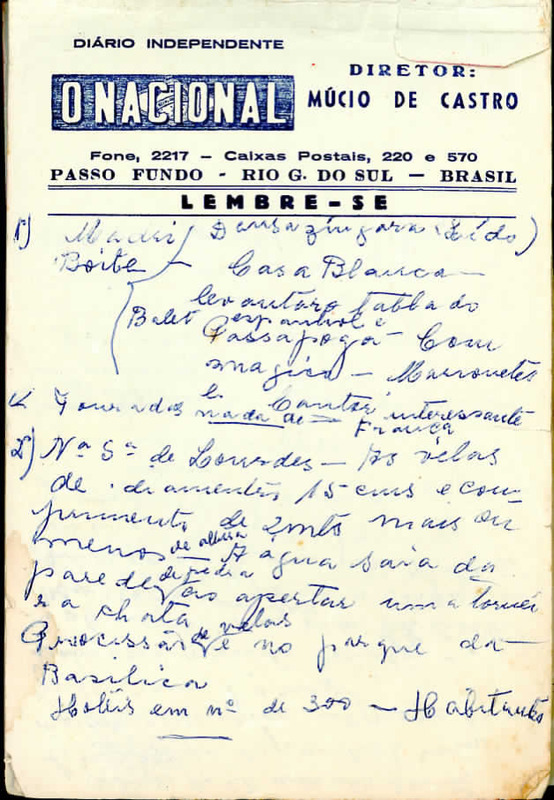 DIÁRIO INDEPENDENTE
O NACIONAL
DIRETOR:
MÚCIO DE CASTRO
Fone, 2217 — Caixas Postais, 220 e 570
PASSO FUNDO - RIO G. DO SUL — BRASIL
LEMBRE-SE
1) Madri Dansa zingara (Lido)
Boite — Casa Blanca —
levantaro tabla do
Balet espanhol e
Passapoga Com
magica — Marionetes
e Cantor interessante
Touradas nada de — França
2) Nª Sª de Lourdes — As velas
de diametro, 15 cms e com-
primento, de 2 mts mais ou
menos de altura — A água saia da
parede de pedra ao apertar uma tornei
ra chata
Processão de velas é no parque da
Basilica
Hotéis em nº de 300 — Habitantes